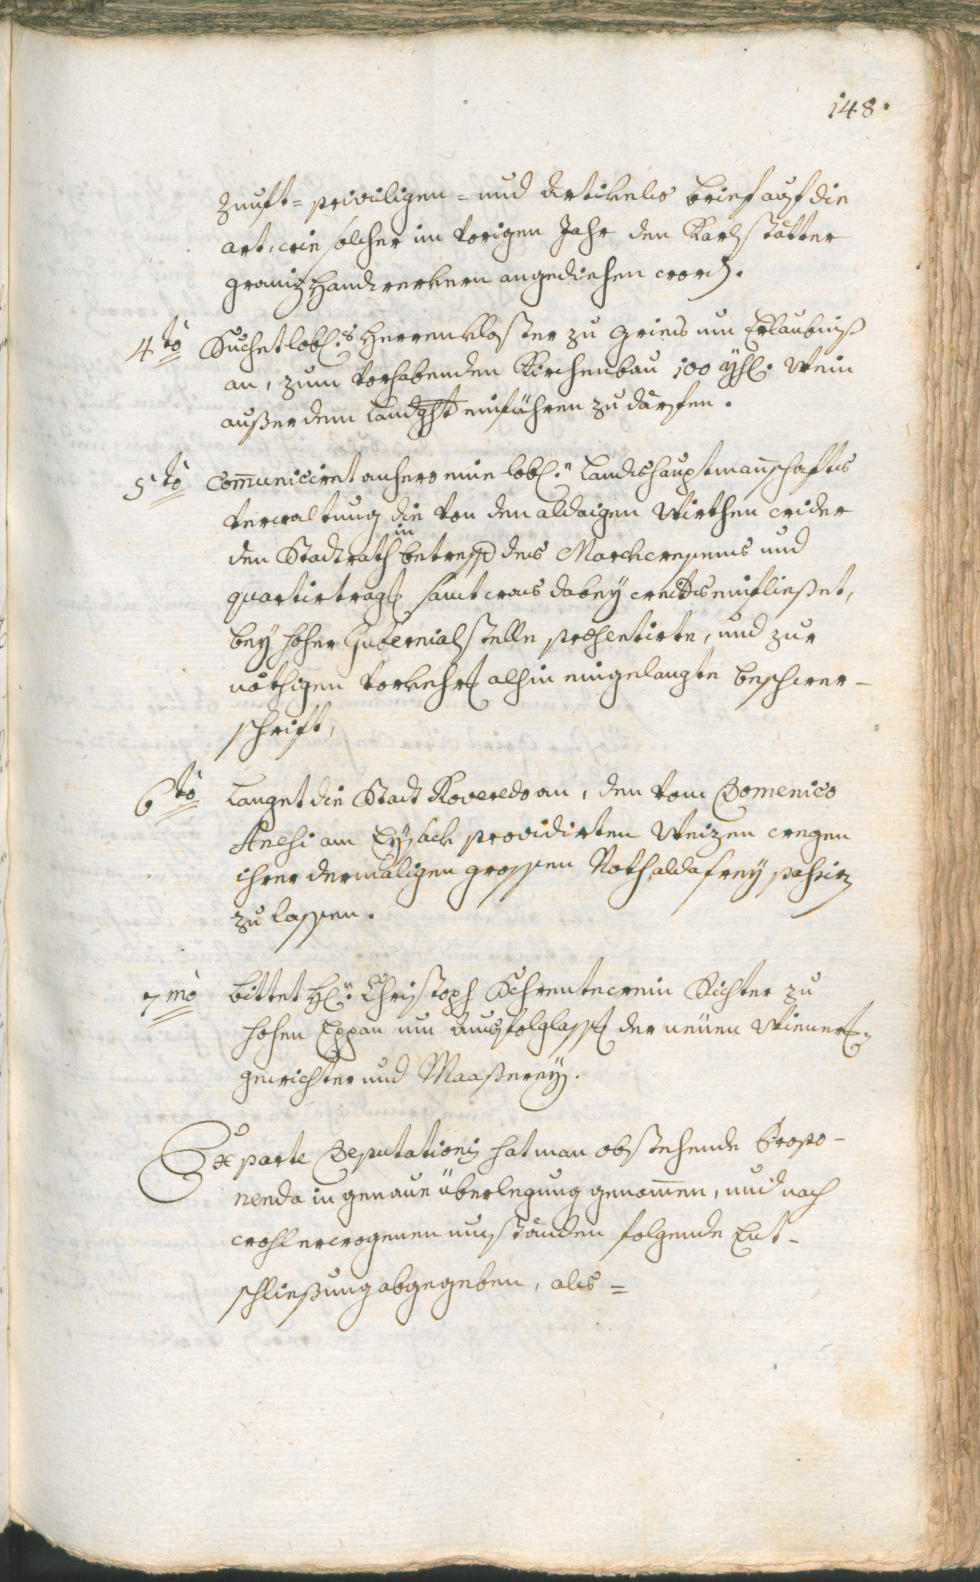 148.
Zunft= priviligen= und Artikels brief auf die
art, wie solcher im vorigen Jahr den Karlstätter
graniz Handwerkern angediehen word̅.
4to Suchet lobl:s Herrenkloster zu Gries um Erlaubniß
an, zum vorhabenden Kirchenbau 100 yhl: Wein
außer dem Landght einführen zu därfen.
5to Com̅uniciret anhero eine lobl:e Landeshauptman̅schafts
verwaltung die von den aldaigen Wirthen wider
den Stadtrath in betreff des Marchwesens und
quartiertrags samt was dabey weiters einfließet,
bey hoher Gubernialstelle præsentirte, und zur
nöthigen Vorkehr alhin eingelangte beschwer-
schrift,
6to Langet die Stadt Roveredo an, den vom Domenico
am Eysack providirten Weizen wegen
ihrer dermaligen grossen Noth alda frey passirn
zu lassen.
7mo bittet H: Christoph Schrentewein Richter zu
hohen Eppan um Ausfolglass der neuen Wiener
gewichter und Maaßerey.
Ex parte Deputationis hat man obstehende Propo-
nenda in genaue überlegung genom̅en, und nach
wohl erwogenen umständen folgende Ent-
schließung abgegeben, als=